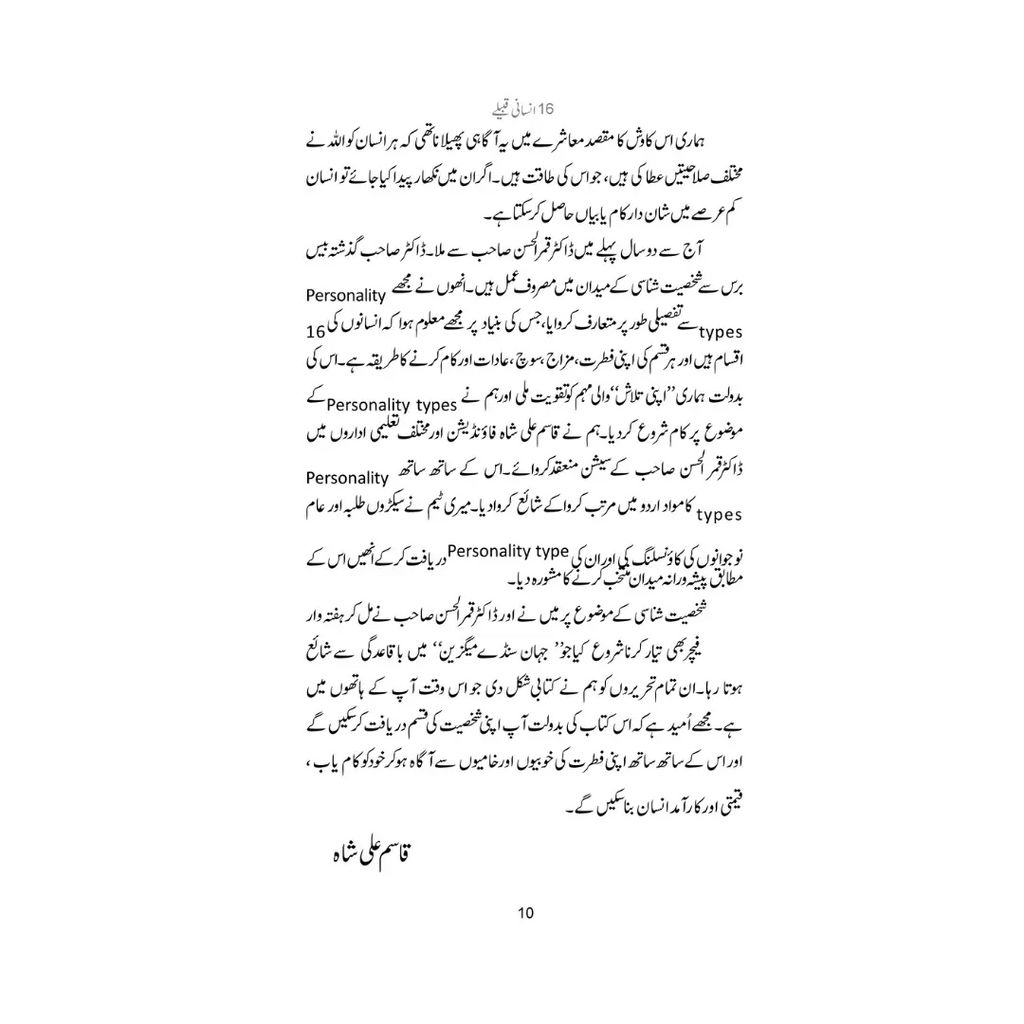 16 انسانی قبیلے
ہماری اس کاوش کا مقصد معاشرے میں یہ آگاہی پھیلانا تھی کہ ہر انسان کو اللہ نے
مختلف صلاحیتیں عطا کی ہیں، جو اس کی طاقت ہیں۔ اگر ان میں نکھار پیدا کیا جائے تو انسان
کم عرصے میں شان دار کام یابیاں حاصل کر سکتا ہے۔
آج سے دو سال پہلے میں ڈاکٹر قمر الحسن صاحب سے ملا۔ ڈاکٹر صاحب گذشتہ بیس
برس سے شخصیت شناسی کے میدان میں مصروف عمل ہیں۔ انھوں نے مجھے Personality
types سے تفصیلی طور پر متعارف کروایا، جس کی بنیاد پر مجھے معلوم ہوا کہ انسانوں کی 16
اقسام ہیں اور ہر قسم کی اپنی فطرت، مزاج، سوچ، عادات اور کام کرنے کا طریقہ ہے۔ اس کی
بدولت ہماری ”اپنی تلاش“ والی مہم کو تقویت ملی اور ہم نے Personality types کے
موضوع پر کام شروع کر دیا۔ ہم نے قاسم علی شاہ فاؤنڈیشن اور مختلف تعلیمی اداروں میں
ڈاکٹر قمر الحسن صاحب کے سیشن منعقد کروائے۔ اس کے ساتھ ساتھ Personality
types کا مواد اردو میں مرتب کروا کے شائع کروا دیا۔ میری ٹیم نے سیکڑوں طلبہ اور عام
نوجوانوں کی کاؤنسلنگ کی اور ان کی Personality type دریافت کر کے انھیں اس کے
مطابق پیشہ ورانہ میدان منتخب کرنے کا مشورہ دیا۔
شخصیت شناسی کے موضوع پر میں نے اور ڈاکٹر قمر الحسن صاحب نے مل کر ہفتہ وار
فیچر بھی تیار کرنا شروع کیا جو ”جہان سنڈے میگزین“ میں باقاعدگی سے شائع
ہوتا رہا۔ ان تمام تحریروں کو ہم نے کتابی شکل دی جو اس وقت آپ کے ہاتھوں میں
ہے۔ مجھے اُمید ہے کہ اس کتاب کی بدولت آپ اپنی شخصیت کی قسم دریافت کر سکیں گے
اور اس کے ساتھ ساتھ اپنی فطرت کی خوبیوں اور خامیوں سے آگاہ ہو کر خود کو کام یاب،
قیمتی اور کارآمد انسان بنا سکیں گے۔
قاسم علی شاہ
10